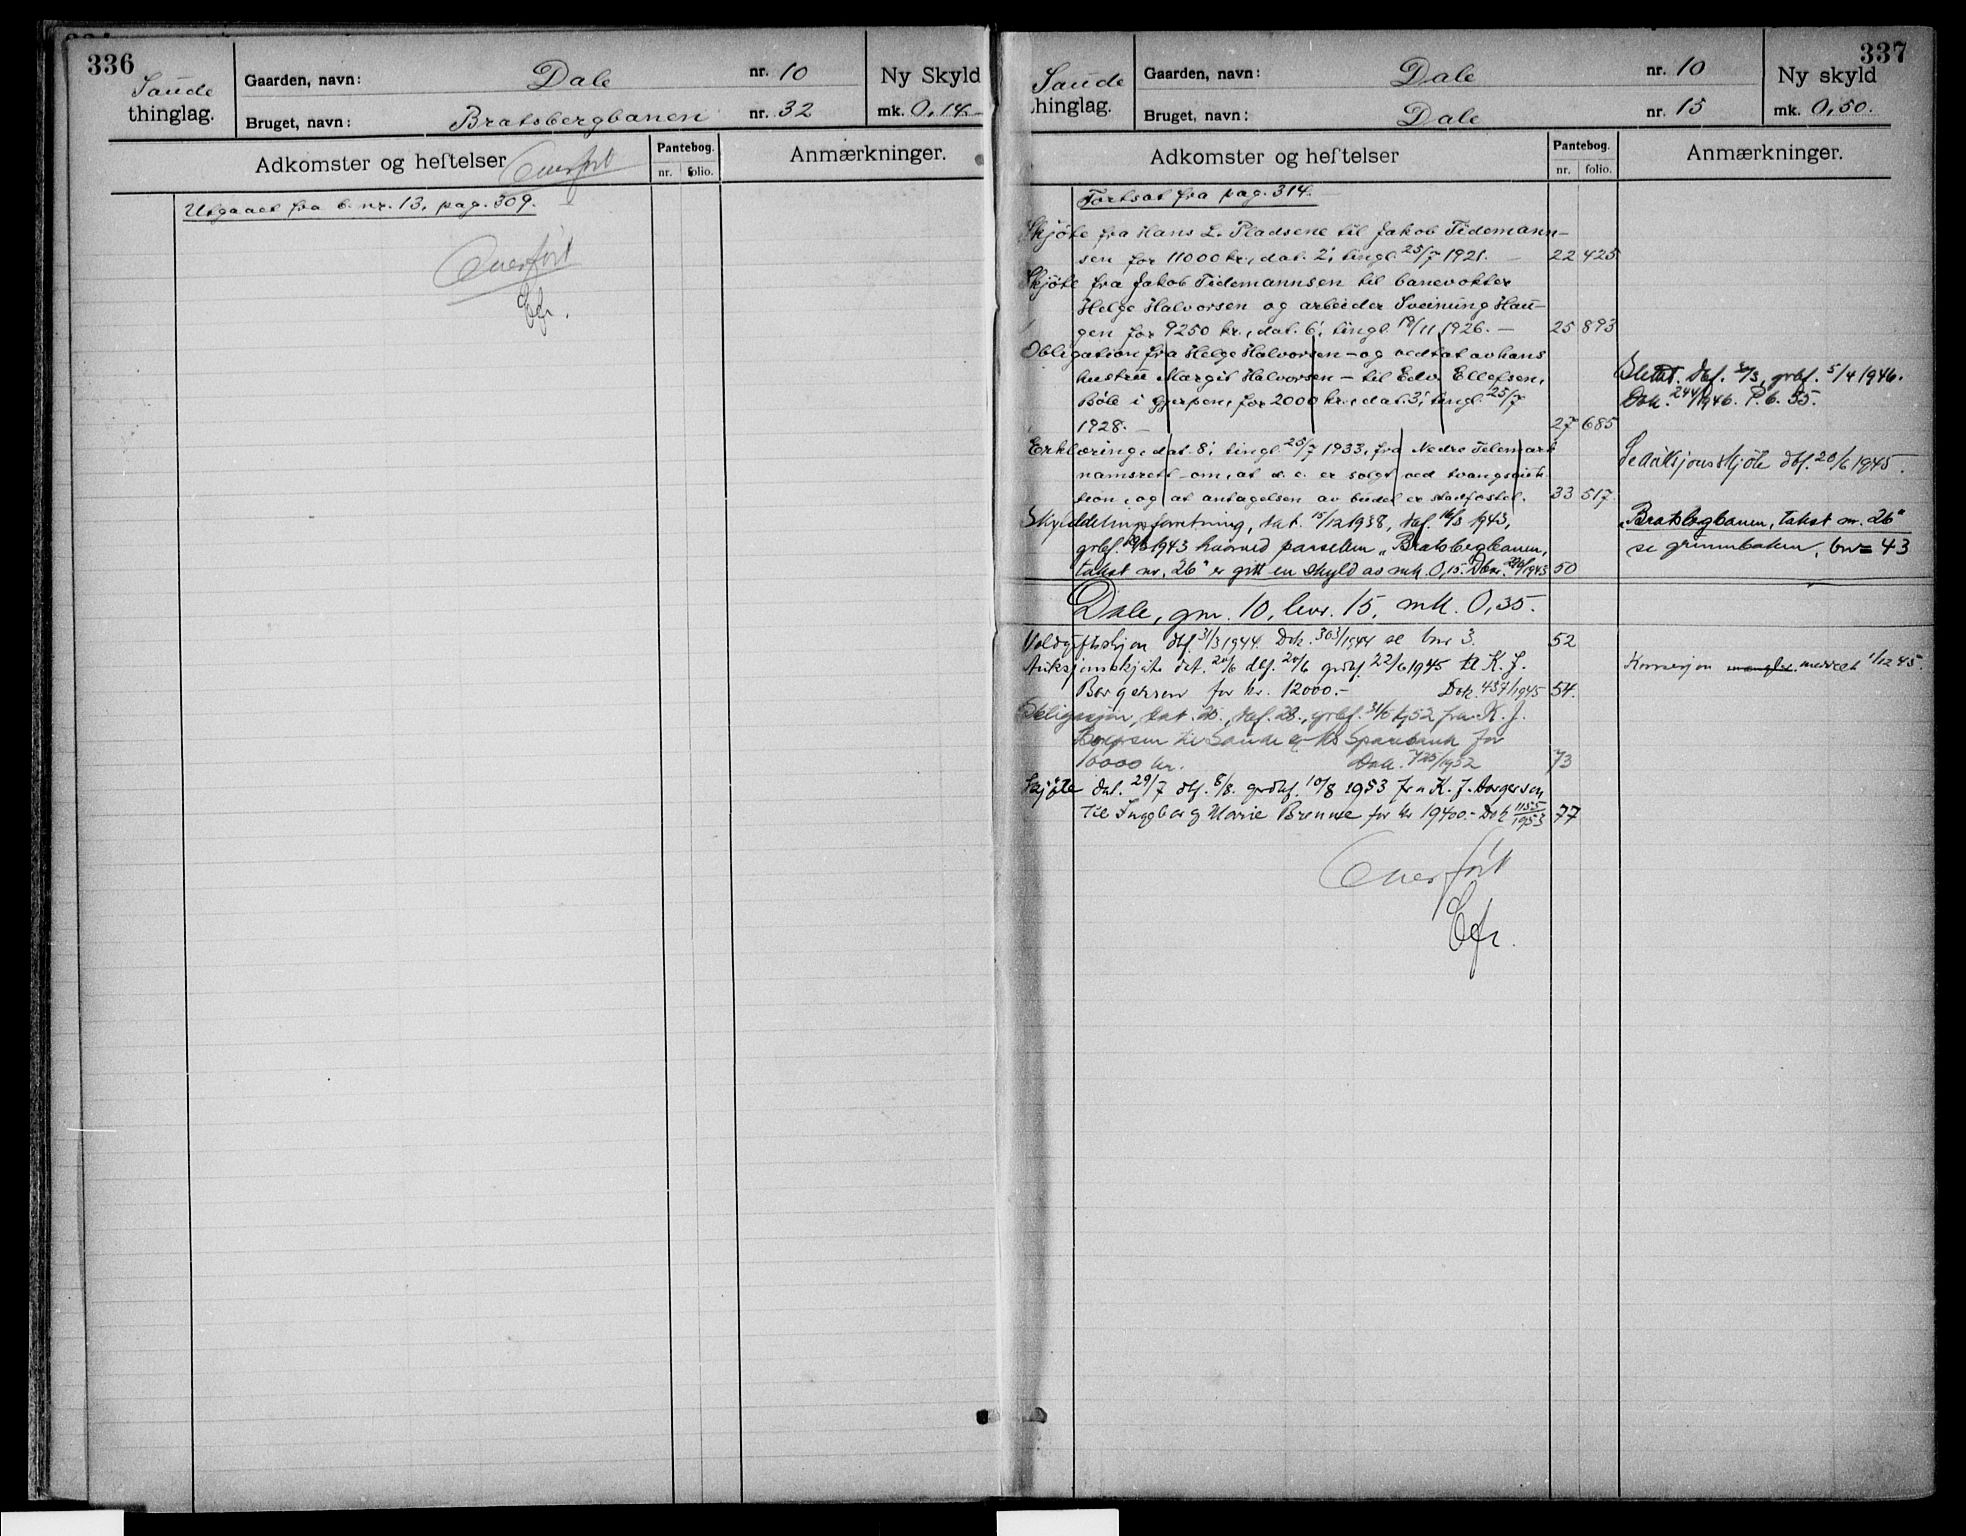 336
Saude
thinglag.
Gaarden, navn: Dale nr. 10
Bruget, navn: Bratsbergbanen nr. 32
Ny Skyld
mk. 0,14.
Adkomster og heftelser Overført
Pantebog.
nr. folio.
Anmærkninger.
Utgaaet fra b. nr. 13, pag. 309.
Overført
337
Saude
thinglag.
Gaarden, navn: Dale nr. 10
Bruget, navn: Dale nr. 15
Ny skyld
mk. 0,50.
Adkomster og heftelser
Pantebog.
nr. folio.
Anmærkninger.
Fortsat fra pag. 314.
Skjøte fra Hans L. Pladsene til Jakob Tidemann-
sen for 11000 kr., dat. 2; tingl. 25/7 1921. 22 425
Skjøte fra Jakob Tidemannsen til banevokter
Helge Halvorsen og arbeider Sveinung Hau-
gen for 9250 kr., dat. 6; tingl. 10/11 1926. — 25 893
Obligation fra Helge Halvorsen – og vedtat av hans
hustru Margit Halvorsen – til Edv. Ellefsen,
Böle i Gjerpen, for 2000 kr., dat. 3; tingl. 25/7
1928. — 27 685
Slettet. Daf. /3, grbf. 5/4 1946.
Dok. 244/1946. P.b. 55.
Erklæring, dat. 8; tingl. 25/7 1933, fra Nedre Telemark
namsrett om, at d. e. er solgt ved tvangsauk-
tion, og at antagelsen av budet er stadfæstet. 33 517.
Se Auksjonsskjöte dbf. 20/6 1945.
Skylddelingsforretning, dat. 15/12 1938, daf. 16/3 1943,
grbf. 1943 hvorved parsellen „Bratsbergbanen,
takst nr. 26" er gitt en skyld av mk. 0,15. Dbnr. /1943 50
„Bratsbergbanen, takst nr. 26"
se grunnboken, bnr 43
Dale, gnr. 10, bnr. 15, mk. 0,35.
Voldgiftsskjøn dbf. 31/3 1944. Dok. 303/1944 se bnr 3. 52
Auksjonsskjøte dat. 20/6 dbf. 20/6 grdbf. 22/6 1945 til K. J.
Borgersen for kr. 12000.- Dok. 457/1945 54.
Konsesjon mangler. meddelt 1/12 45.
Obligasjon, dat. 28., daf. 28., grbf. 31/5 1952 fra K. J.
Borgersen til Saude og Nes Sparebank for
10000 kr. Dok. 725/1952 73
Skjøte dat. 29/7 dbf. 8/8. grdbf. 10/8 1953 fra K. J. Borgersen
til Ingeborg Marie Brenne for kr 19400.- Dok 1155/1953 77
Overført